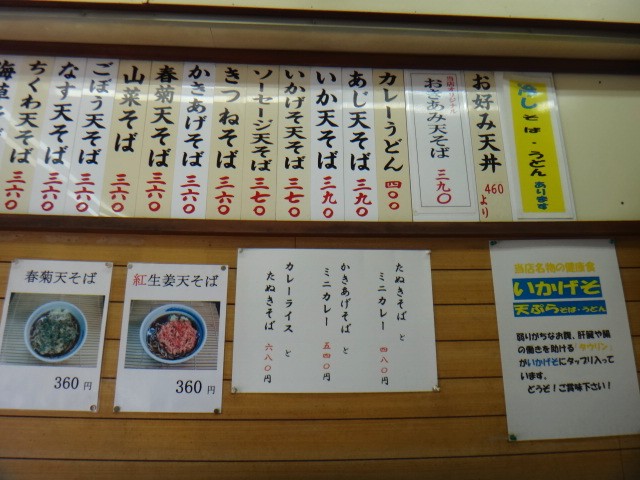 冷しそば・うどん
あります
お好み天丼
460より
おこのみ天そば 三九〇
カレーうどん 四〇〇
あじ天そば 三九〇
いか天そば 三九〇
いかげそ天そば 三七〇
ソーセージ天そば 三七〇
きつねそば 三六〇
かきあげそば 三六〇
春菊天そば 三六〇
山菜そば 三六〇
ごぼう天そば 三六〇
なす天そば 三六〇
ちくわ天そば 三六〇
春菊天そば
360円
紅生姜天そば
360円
たぬきそば と
ミニカレー 四八〇円
かきあげそば と
ミニカレー 五四〇円
カレーライス と
たぬきそば 六八〇円
当店名物の健康食
いかげそ
天ぷらそば・うどん
弱りがちなお腹、肝臓や腸
の働きを助ける「タウリン」
がいかげそにタップリ入って
います。
どうぞ!ご賞味下さい!